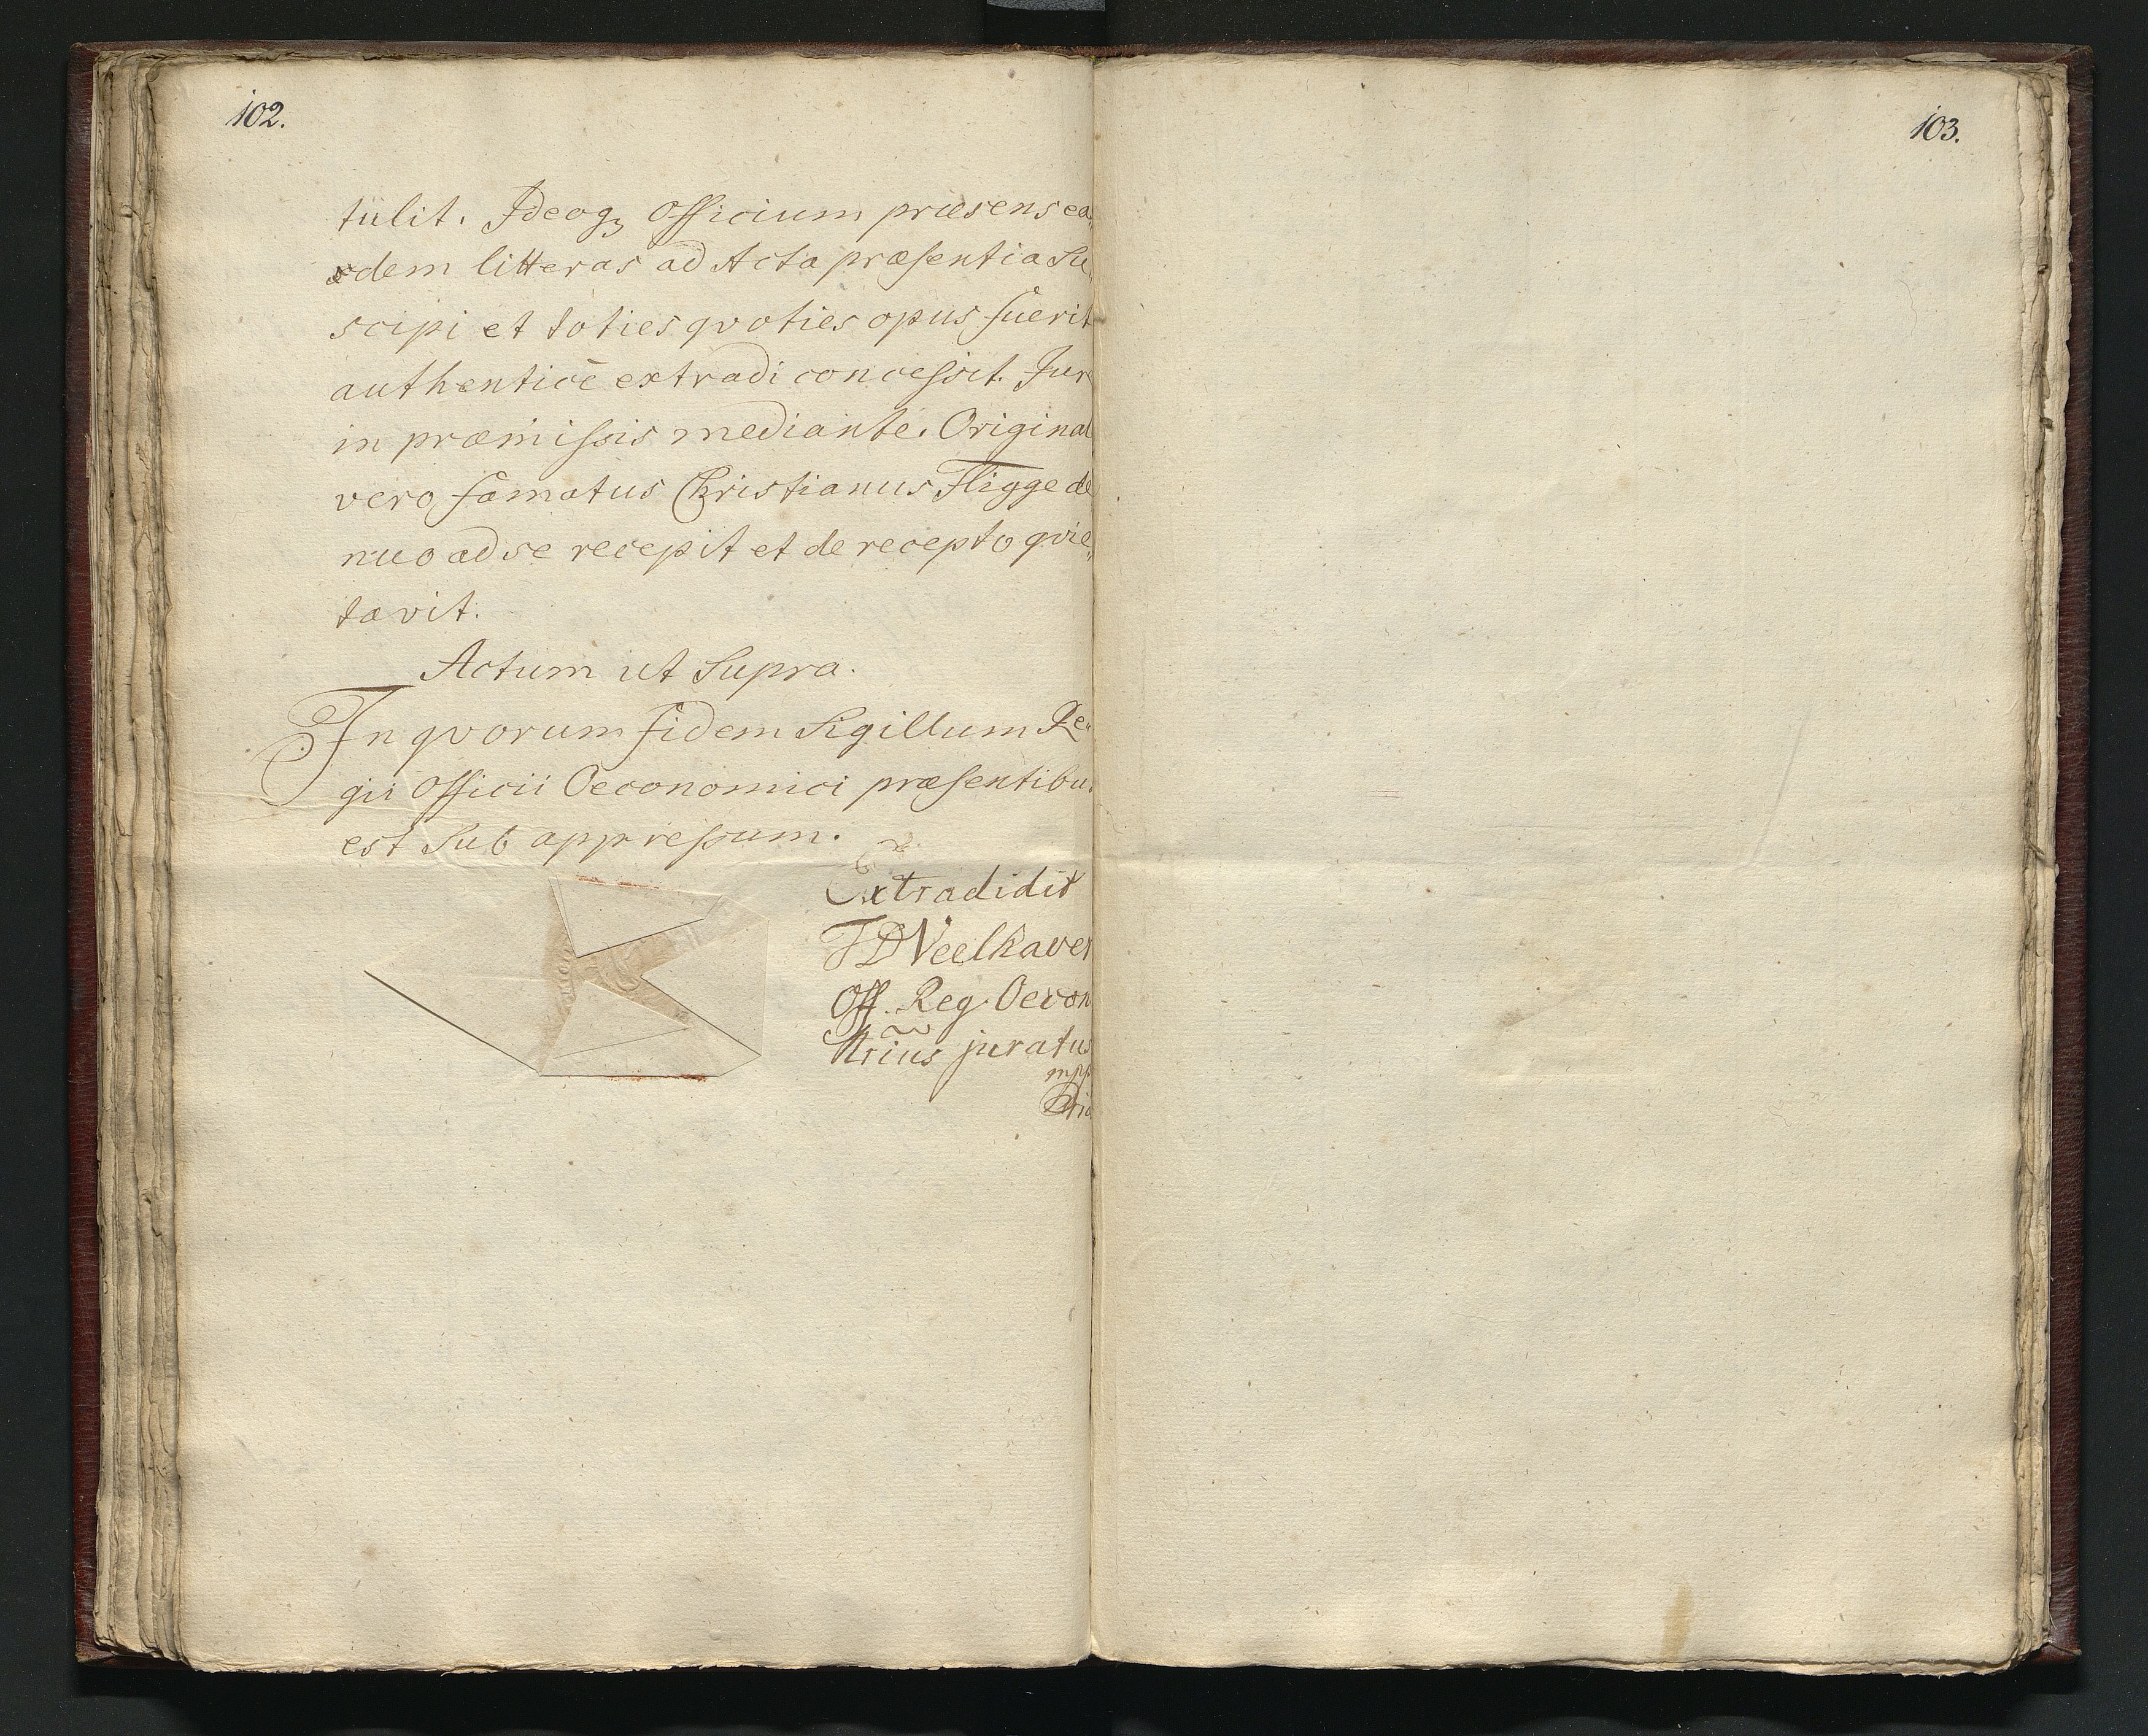 102.
tulit. Ideoq; Officium præsens ea„
dem litteras ad Acta præsentia Su„
scipi et toties qvoties opus fuerit
authenticè extradi concessit. Jure
in præmissis mediante. Original
vero famatus Christianus Fligge de
nuo ad se recepit et de recepto qvie„
tavit.
Actum ut Supra.
In qvorum fidem Sigillum Re„
gii Officii Oeconomici præsentibus
est Sub appressum.
Extradidit
Off. Reg. Oecon
juratus
mpp
103.